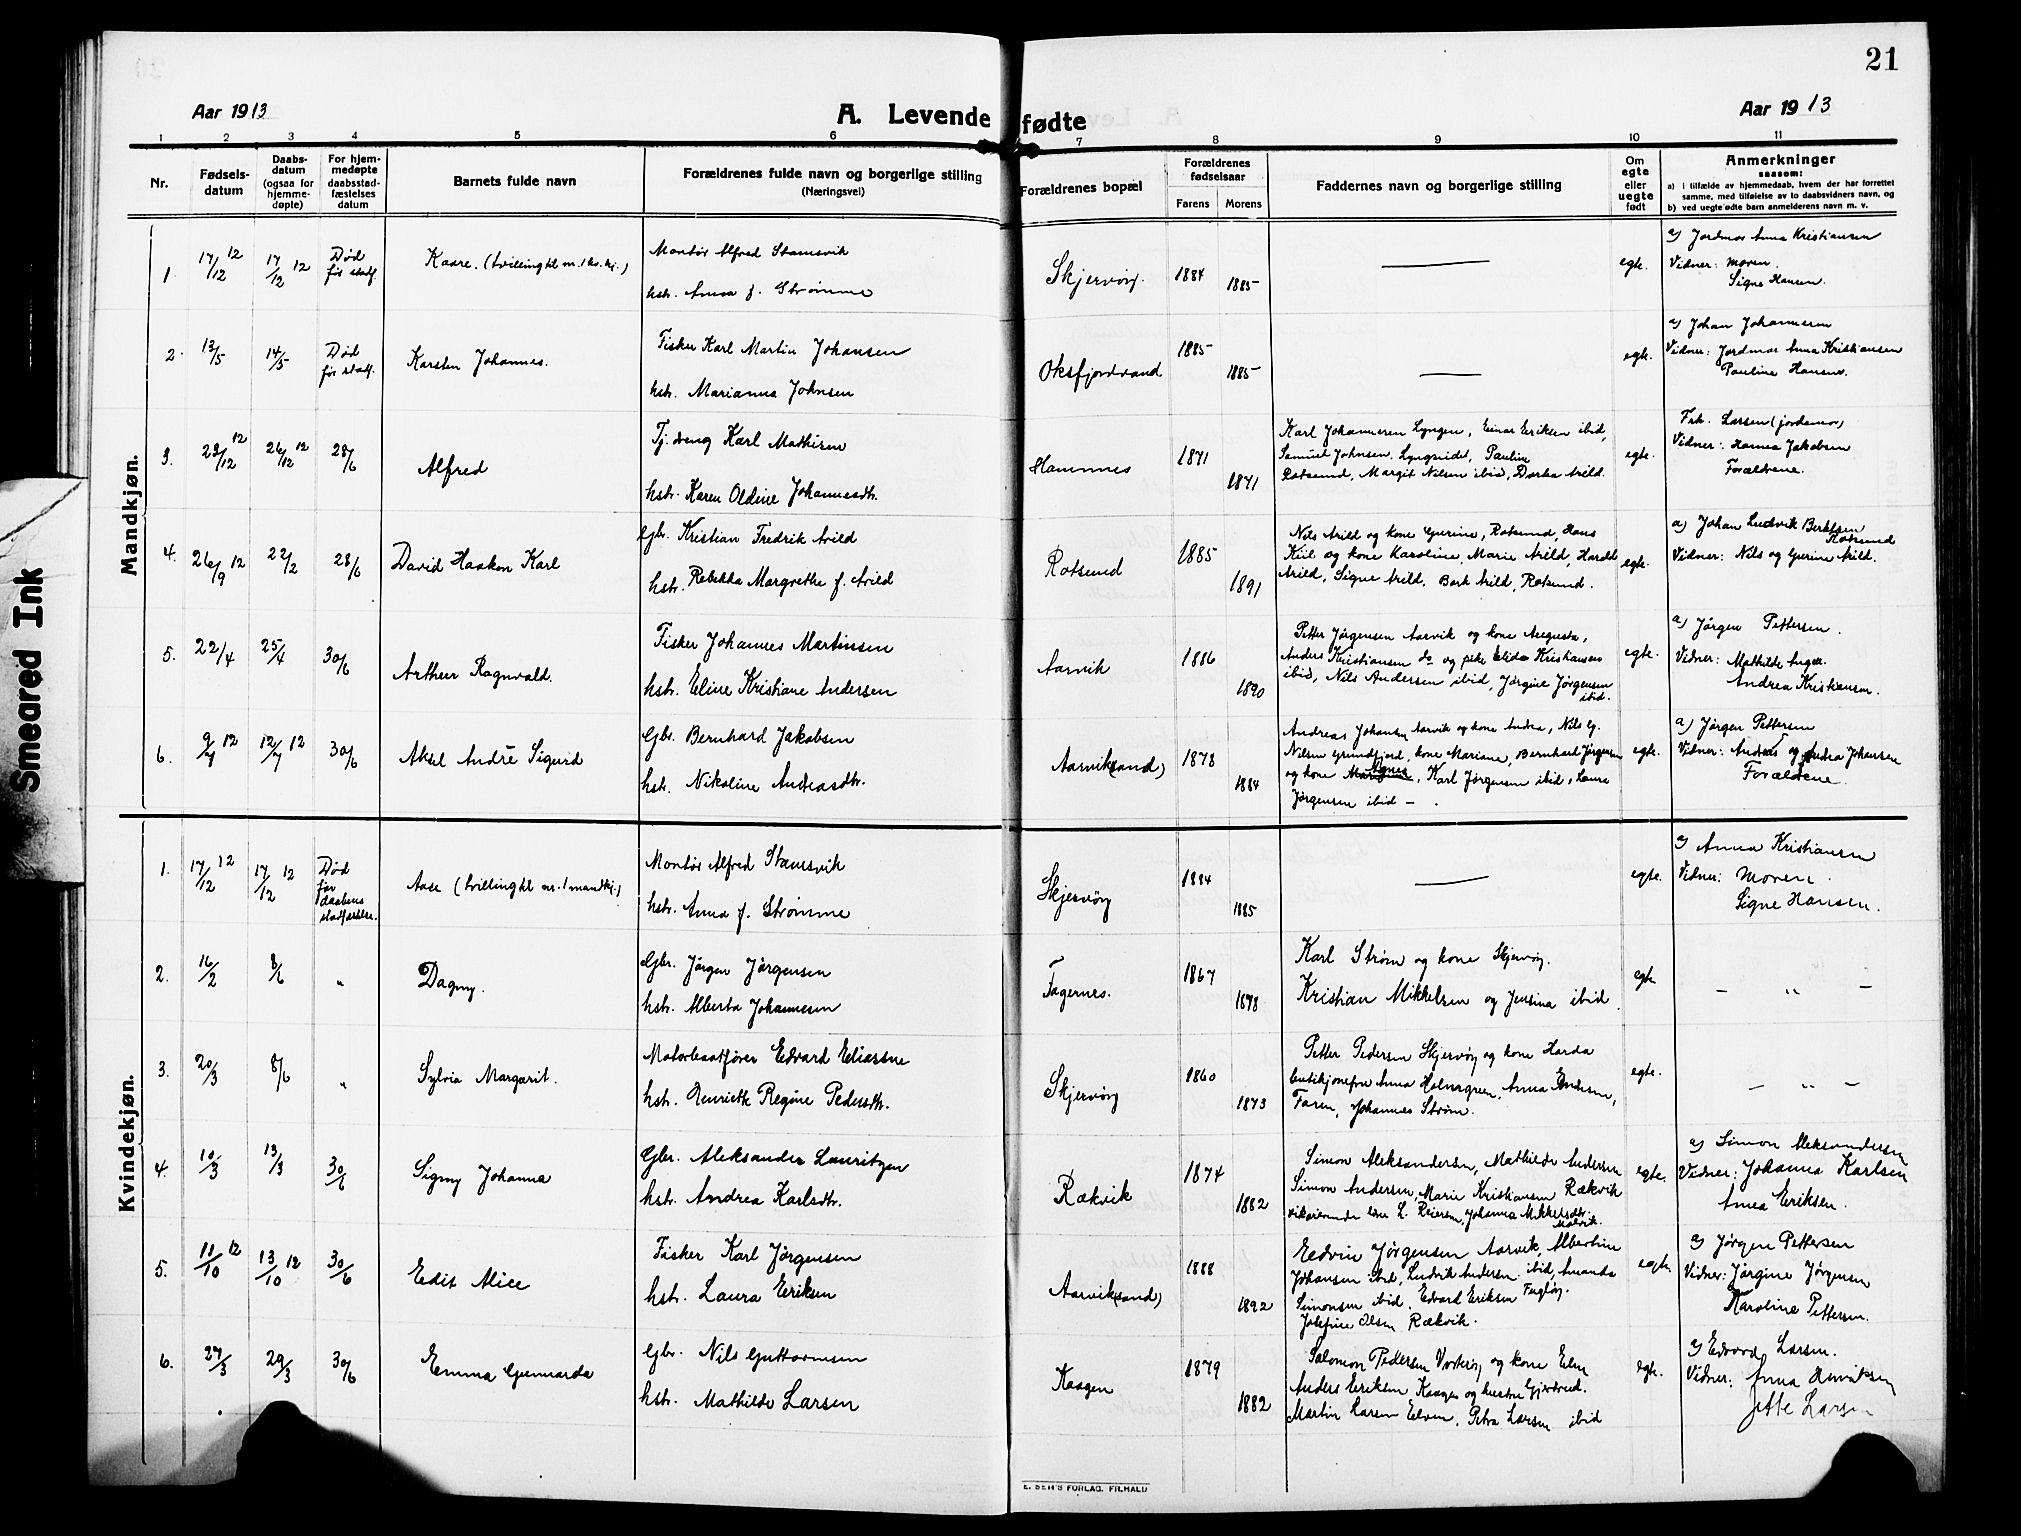 21
Aar 1913
A. Levende fødte
Aar 1913
1 2 3 4 5 6 7 8 9 10 11
Nr.
Fødsels-
datum
Daabs-
datum
(ogsaa for
hjemme-
døpte)
For hjem-
medøpte
daabsstad-
fæstelses
datum
Barnets fulde navn
Forældrenes fulde navn og borgerlige stilling
(Næringsvei)
Forældrenes bopæl
Forældrenes
fødselsaar
Farens Morens
Faddernes navn og borgerlige stilling
Om
egte
eller
uegte
født
Anmerkninger
saasom:
a) i tilfælde av hjemmedaab, hvem der har forrettet
samme, med tilføielse av to daabsvidners navn, og
b) ved uegte fødte barn anmelderens navn m. v.
Mandkjøn.
1. 17/12 12 17/12 12 Død før stadf. Kaare. (tvilling til nr. 1 kv.kj.)
Montør Alfred Stamsvik
hstr. Anna f. Strømme
Skjervøy. 1884 1885 — egte.
a) Jordmor Anna Kristiansen
Vidner: Moren.
Signe Hansen.
2. 13/5 14/5 Død før stadf. Karsten Johannes.
Fisker Karl Martin Johansen
hstr. Marianna Johnsen
Oksfjordvand 1885 1885 — egte.
a) Johan Johannesen
Vidner: Jordmor Anna Kristiansen
Pauline Hansen.
3. 23/12 12 26/12 12 28/6 Alfred
Tj.dreng Karl Mathisen
hstr. Karen Oldine Johannesdtr.
Hamnes 1871 1871
Karl Johannesen Lyngen, Einar Eriksen ibid,
Samuel Johnsen, Lyngseidet, Pauline
Rotsund, Margit Nilsen ibid, Dorka Arild.
egte.
Frk. Larsen (jordmor)
Vidner: Hanna Jakobsen
Forældrene.
4. 26/9 12 22/2 28/6 David Haakon Karl
Gbr. Kristian Fredrik Arild
hstr. Rebekka Margrethe f. Arild
Rotsund 1885 1891
Nils Arild og kone Gurine, Rotsund, Hans
Kiil og kone Karoline, Marie Arild, Harald
Arild, Signe Arild, Bark Arild, Rotsund.
egte.
a) Johan Ludvik Berthsen
Rotsund
Vidner: Nils og Gurine Arild.
5. 22/4 25/4 30/6 Arthur Ragnvald.
Fisker Johannes Martinsen
hstr. Eline Kristiane Andersen
Aarvik 1886 1890
Petter Jørgensen Aarvik og kone Augusta,
Anders Kristiansen do og pike Elida Kristiansen
ibid, Nils Andersen ibid, Jørgine Jørgensen
ibid.
egte.
a) Jørgen Pettersen.
Vidner: Mathilde
Andrea Kristiansen.
6. 9/7 12 12/7 12 30/6 Aksel Andrè Sigurd
Gbr. Bernhard Jakobsen
hstr. Nikoline Andreasdtr.
Aarvik(sand) 1878 1884
Andreas Johansen Aarvik og kone Andrea, Nils G.
Nilsen Grundfjord, kone Mariane, Bernhart Jørgensen
og kone Agnes, Karl Jørgensen ibid, Laura
Jørgensen ibid —.
egte.
a) Jørgen Pettersen
Vidner: Andreas og Andrea Johansen
Forældrene.
Kvindekjøn.
1. 17/12 12 17/12 12 Død før daabens stadfæstelse. Aase (tvilling til nr. 1 mandkj.)
Montør Alfred Stamsvik
hstr. Anna f. Strømme
Skjervøy 1884 1885 — egte.
a) Anna Kristiansen
Vidner: Moren.
Signe Hansen.
2. 16/2 8/6 " Dagny.
Gbr. Jørgen Jørgensen
hstr. Alberta Johannesen
Fagernes. 1867 1878
Karl Strøm og kone Skjervøy.
Kristian Mikkelsen og Jensina ibid.
egte — " —
3. 20/3 8/6 " Sylvia Margarit.
Motorbaatfører Edvard Eliassen
hstr. Henriette Regine Pedersdtr.
Skjervøy 1860 1873
Petter Pedersen Skjervøy og kone Harda
butikjomfru Anna Holmgren, Anna Endresen,
Faren, Johannes Strøm.
egte. — " —
4. 10/3 13/3 30/6 Signy Johanna
Gbr. Aleksander Lauritzen
hstr. Andrea Karlsdtr.
Rækvik 1874 1882
Simon Aleksandersen, Mathilde Andersen
Simon Andersen, Marie Kristiansen Rækvik
vikarierende lærer L. Reiersen, Johanna Mikkelsdtr.
Molvik.
egte.
a) Simon Aleksandersen
Vidner: Johanna Karlsen
Anna Eriksen.
5. 11/10 12 13/10 12 30/6 Edit Alice
Fisker Karl Jørgensen
hstr. Laura Eriksen
Aarvik(sand) 1888 1892
Edvin Jørgensen Aarvik, Albertine
Johansen ibid, Ludvik Andersen ibid, Amanda
Simonsen ibid, Edvard Eriksen Fugløy.
Josefine Olsen Rækvik.
egte.
a) Jørgen Pettersen
Vidner: Jørgine Jørgensen
Karoline Pettersen.
6. 27/3 29/3 30/6 Emma Gunnarda
Gbr. Nils Guttormsen
hstr. Mathilde Larsen
Kaagen 1879 1882
Salomon Pedersen Vorterøy og kone Elen
Anders Eriksen Kaagen og hustru Gjertrud.
Martin Larsen Elven, Petra Larsen ibid
egte.
a) Edvard Larsen.
Vidner: Anna Henriksen
Jette Larsen
Smeared Ink